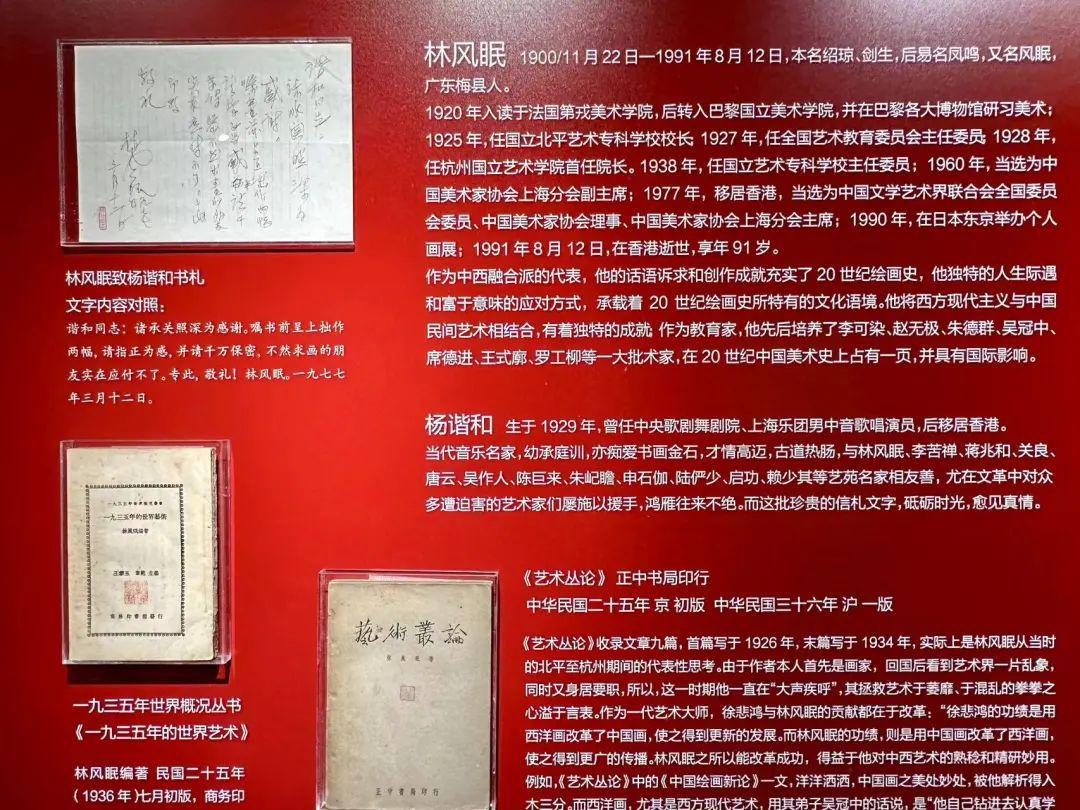 林风眠 1900/11月22日—1991年8月12日,本名绍琼、剑生,后易名凤鸣,又名风眠,
广东梅县人。
1920年入读于法国第戎美术学院,后转入巴黎国立美术学院,并在巴黎各大博物馆研习美术;
1925年,任国立北平艺术专科学校校长;1927年,任全国艺术教育委员会主任委员;1928年,
任杭州国立艺术学院首任院长。1938年,任国立艺术专科学校主任委员;1960年,当选为中
国美术家协会上海分会副主席;1977年,移居香港,当选为中国文学艺术界联合会全国委员
会委员、中国美术家协会理事、中国美术家协会上海分会主席;1990年,在日本东京举办个人
画展;1991年8月12日,在香港逝世,享年91岁。
作为中西融合派的代表,他的话语诉求和创作成就充实了20世纪绘画史,他独特的人生际遇
和富于意味的应对方式,承载着20世纪绘画史所特有的文化语境。他将西方现代主义与中国
民间艺术相结合,有着独特的成就;作为教育家,他先后培养了李可染、赵无极、朱德群、吴冠中、
席德进、王式廓、罗工柳等一大批术家,在20世纪中国美术史上占有一页,并具有国际影响。
林风眠致杨谐和书札
文字内容对照:
谐和同志:诸承关照深为感谢。嘱书前呈上拙作
两幅,请指正为感,并请千万保密、不然求画的朋
友实在应付不了。专此,敬礼!林风眠。一九七七
年三月十二日。
杨谐和 生于1929年,曾任中央歌剧舞剧院、上海乐团男中音歌唱演员,后移居香港。
当代音乐名家,幼承庭训,亦痴爱书画金石,才情高迈,古道热肠,与林风眠、李苦禅、蒋兆和、关良、
唐云、吴作人、陈巨来、朱屺瞻、申石伽、陆俨少、启功、赖少其等艺苑名家相友善,尤在文革中对众
多遭迫害的艺术家们屡施以援手,鸿雁往来不绝。而这批珍贵的信札文字,砥砺时光,愈见真情。
一九三五年世界概况叢書
一九三五年的世界藝術
林風眠編著
商務印書館發行
一九三五年世界概况丛书
《一九三五年的世界艺术》
林风眠编著 民国二十五年
(1936年)七月初版,商务印
藝術叢論
林風眠著
正中書局印行
《艺术丛论》 正中书局印行
中华民国二十五年 京 初版 中华民国三十六年 沪 一版
《艺术丛论》收录文章九篇,首篇写于1926年,末篇写于1934年,实际上是林风眠从当时
的北平至杭州期间的代表性思考。由于作者本人首先是画家,回国后看到艺术界一片乱象,
同时又身居要职,所以,这一时期他一直在“大声疾呼”,其拯救艺术于萎靡、于混乱的拳拳之
心溢于言表。作为一代艺术大师,徐悲鸿与林风眠的贡献都在于改革:“徐悲鸿的功绩是用
西洋画改革了中国画,使之得到更新的发展。而林风眠的功绩,则是用中国画改革了西洋画,
使之得到更广的传播。林风眠之所以能改革成功,得益于他对中西艺术的熟稔和精研妙用。
例如,《艺术丛论》中的《中国绘画新论》一文,洋洋洒洒,中国画之美处妙处,被他解析得入
木三分。而西洋画,尤其是西方现代艺术,用其弟子吴冠中的话说,是“他自己钻进去认真学